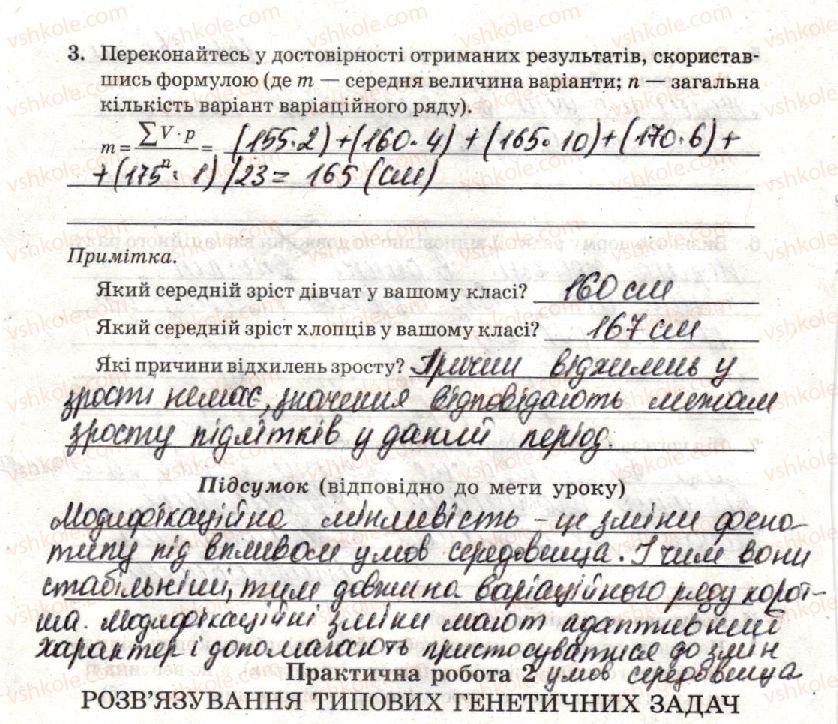 3. Переконайтесь у достовірності отриманих результатів, скориставшись
шись формулою (де m — середня величина варіанти; n — загальна
кількість варіант варіаційного ряду).
m = ∑V·p / n = (155·2)+(160·4)+(165·10)+(170·6)+
+(175·1)/23 = 165 (см)
Примітка.
Який середній зріст дівчат у вашому класі? 160 см
Який середній зріст хлопців у вашому класі? 167 см
Які причини відхилень зросту? Причин відхилень у
зрості немає, значення відповідають межам
зросту підлітків у даний період.
Підсумок (відповідно до мети уроку)
Модифікаційна мінливість - це зміни фено-
типу під впливом умов середовища. І чим вони
стабільніші, тим довжина варіаційного ряду корот-
ша. Модифікаційні зміни мают адаптивний
характер і допомагають пристосуватися до змін
Практична робота 2 умов середовища
РОЗВ'ЯЗУВАННЯ ТИПОВИХ ГЕНЕТИЧНИХ ЗАДАЧ